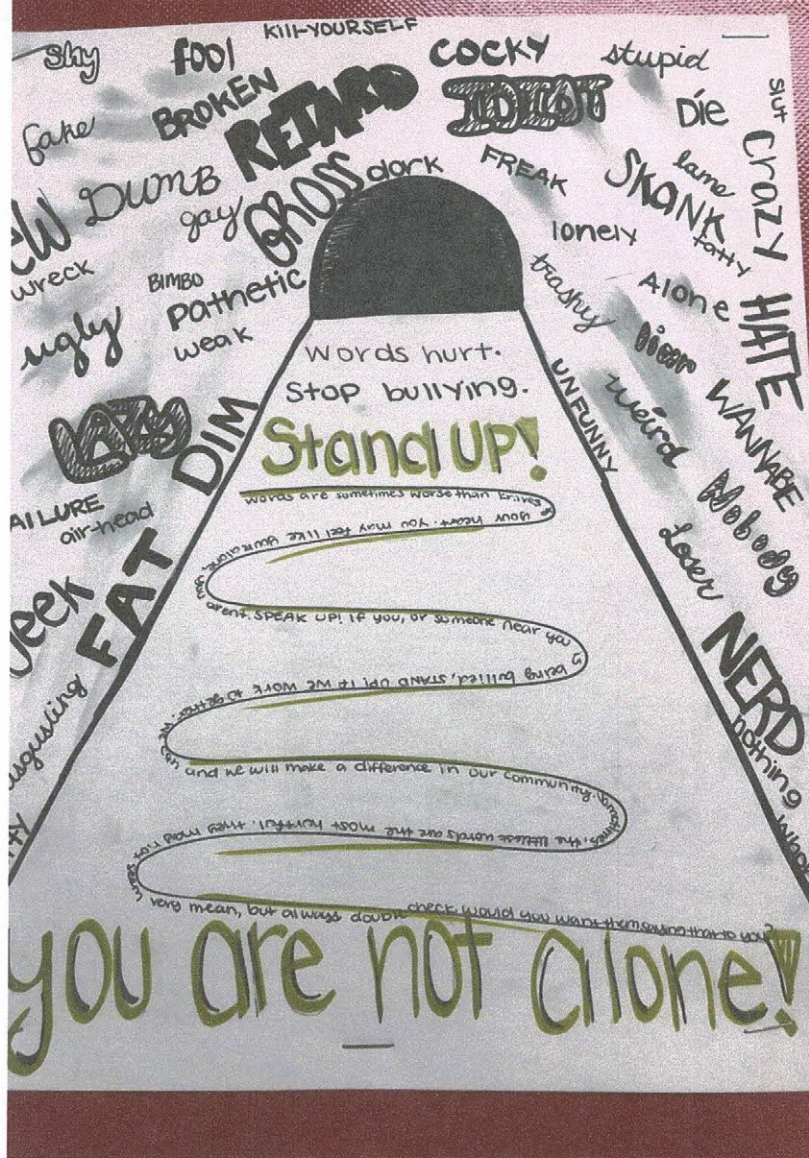 KIll-YOURSELF
shy
fool
COCKY
stupid
fake
BROKEN
RETARD
IDIOT
Die
Slut
DUMB
gay
GROSS
dark
FREAK
SKANK
lame
fatty
Crazy
EW
wreck
BIMBO
Pathetic
lonely
trashy
Alone
HATE
ugly
weak
liear
WANNABE
LAZY
DIM
UNFUNNY
weird
Nobody
AILURE
air-head
Loser
eek
FAT
NERD
isgusting
nothing
Words hurt.
Stop bullying.
Stand UP!
words are sometimes worse than knives
your heart. you may feel like your alone, you
arent. SPEAK UP! If you, or someone near you
is being bullied, STAND UP! If we work together, we
can and we will make a difference in our community. Sometimes,
the littlest words are the most hurtful. they may not seem
very mean, but always double check would you want them saying that to you?
you are not alone!